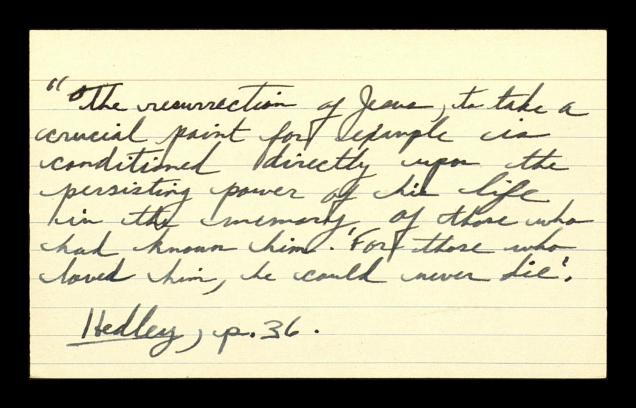 "The resurrection of Jesus, to take a
crucial point for example is
conditioned directly upon the
persisting power of his life
in the memory of those who
had known him. 'For those who
loved him, he could never die'.
Hedley, p. 36.